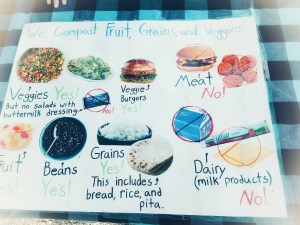 We Compost Fruit, Grains, and Veggies
Veggies Yes!
But no salads with
buttermilk dressing
Veggie
Burgers
Yes!
Meat
No!
Fruit
Yes!
Beans
Yes!
Grains
Yes!
This includes
bread, rice, and
pita.
Dairy
(milk products)
No!